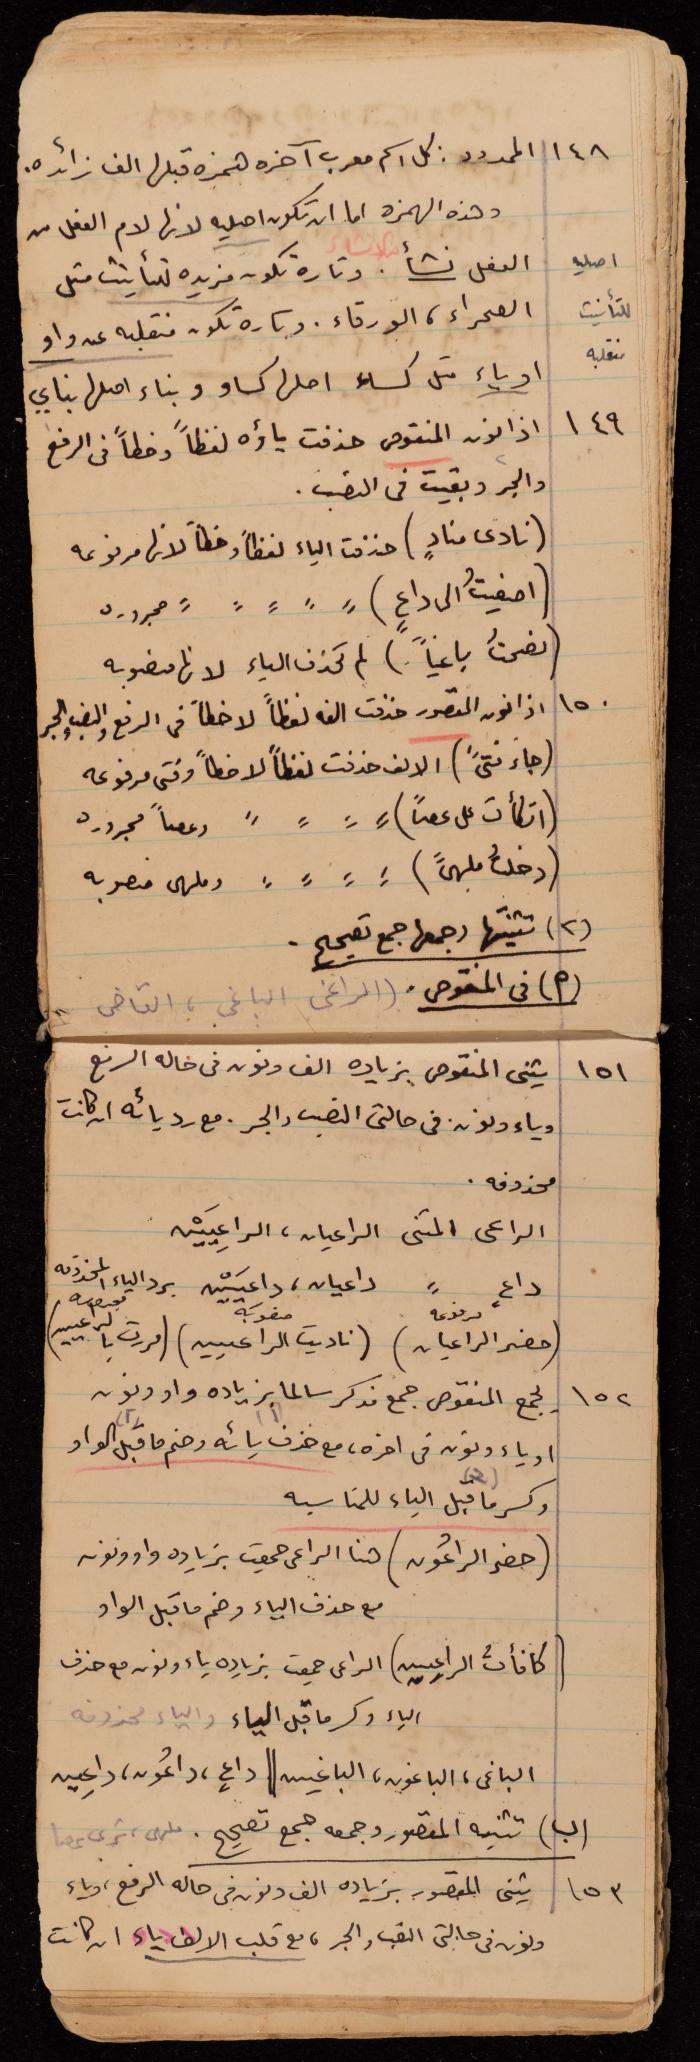 ١٤٨ الممدود : كل اسم معرب آخره همزه قبلها الف زائده.
وهذه الهمزه اما ان تكون اصليه لانها لام الفعل من
اصليه الفعل نشأ . وتارة تكون مزيده للتأنيث مثل
للتأنيث الصحراء ، الورقاء . وتارة تكون منقلبه عن واو
منقلبه
او ياء مثل كساء اصلها كساو وبناء اصلها بناي
١٤٩ اذا نون المنقوص حذفت ياؤه لفظاً وخطاً في الرفع
والجر وبقيت في النصب .
(نادى منادٍ) حذفت الياء لفظاً وخطاً لانها مرفوعه
(اصغيتُ الى داعٍ) " " " " " مجروره
(نصحتُ باغياً) لم تحذف الياء لانها منصوبه
١٥٠ اذا نون المقصور حذفت الفه لفظاً لا خطاً في الرفع والنصب والجر
(جاءَ فتىً) الالف حذفت لفظاً لا خطاً وفتى مرفوعه
(اتكأت على عصاً) " " " " وعصاً مجروره
(دخلتُ ملهىً) " " " " وملهى منصوبه
(٢) تثنيتها وجمعها جمع تصحيح .
(٢) في المنقوص . (الراعي الباغي ، القاضي
١٥١ يثنى المنقوص بزياده الف ونون في حاله الرفع
وياء ونون في حالتي النصب والجر . مع رد يائه ان كانت
محذوفه .
الراعى المثنى الراعيان ، الراعِيَيْن
داعٍ " داعيان ، داعيَيْن برد الياء المحذوفه
مرفوعه منصوبه
(حضر الراعيان) (ناديت الراعيين) (مررت بالراعيين)
١٥٢ يجمع المنقوص جمع مذكر سالما بزياده واو ونون
(١) (٢)
او ياء ونون في اخره ، مع حذف يائه وضم ما قبل الواو
وكسر ما قبل الياء للمناسبه
(حضر الراعُون) هنا الراعى جمعت بزياده واو ونون
مع حذف الياء وضم ما قبل الواو
(كافأتُ الراعِين) الراعى جمعت بزياده ياء ونون مع حذف
الياء وكسر ما قبل الياء والياء محذوفه
الباغى ، الباغون ، الباغين || داعٍ ، داعُون ، داعِين
(ب) تثنيه المقصور وجمعه جمع تصحيح . ملهى ،
١٥٣ يثنى المقصور بزياده الف ونون في حاله الرفع ، وياء
ونون في حالتي النصب والجر ، مع قلب الالف ياء ان كانت